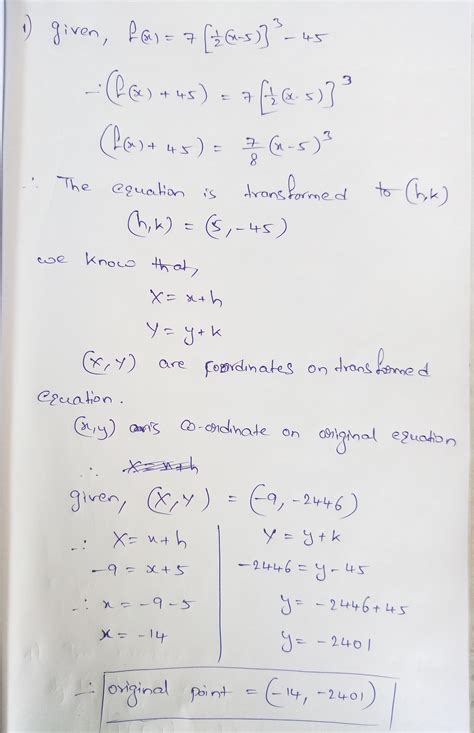 1) given, f(x) = 7 [½(x-5)]³ - 45
∴ (f(x) + 45) = 7 [½(x-5)]³
(f(x) + 45) = 7/8 (x-5)³
∴ The equation is transformed to (h,k)
(h,k) = (5, -45)
we know that,
X = x+h
Y = y+k
(X, Y) are coordinates on transformed
equation.
(x,y) is co-ordinate on original equation
∴ X = x+h
given, (X, Y) = (-9, -2446)
∴ X = x+h Y = y+k
-9 = x+5 -2446 = y-45
∴ x = -9-5 y = -2446+45
x = -14 y = -2401
∴ original point = (-14, -2401)